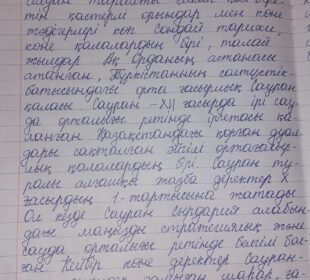 тін қастерлі орындар мен көне
жәдігерлері көп. Сондай тарихи,
көне қалалардың бірі, талай
жылдар Ақ Орданың астанасы
атанған, Түркістанның солтүстік-
батысындағы орта ғасырлық Сауран
қаласы. Сауран - XII ғасырда ірі сау-
да орталығы ретінде іргетасы қа-
ланған Қазақстандағы қорған дуал-
дары сақталған әйгілі ортағасыр-
лық қалалардың бірі. Сауран ту-
ралы алғашқы жазба деректер X
ғасырдың 1-жартысына жатады.
Ол кезде Сауран Сырдария алабын-
дағы маңызды стратегиялық және
сауда орталығы ретінде белгілі бол-
ған. Кейбір көне деректер Сауран-
шаһар, қа-